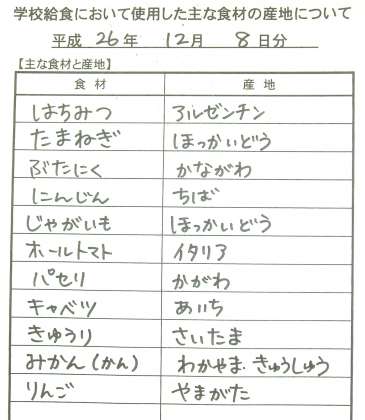 学校給食において使用した主な食材の産地について
平成 26年 12月 8日分
【主な食材と産地】
食材 産地
はちみつ アルゼンチン
たまねぎ ほっかいどう
ぶたにく かながわ
にんじん ちば
じゃがいも ほっかいどう
ホールトマト イタリア
パセリ かがわ
キャベツ あいち
きゅうり さいたま
みかん(かん) わかやま・きゅうしゅう
りんご やまがた